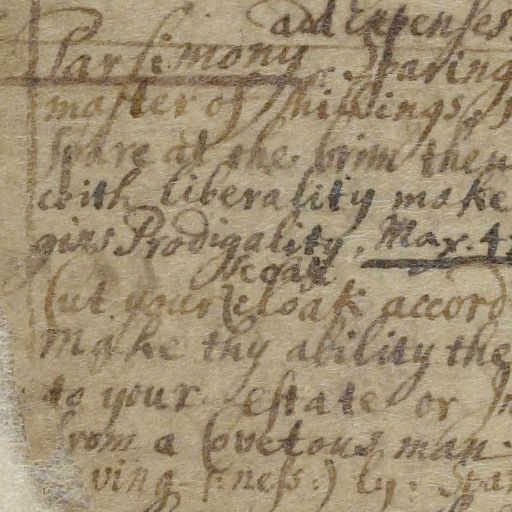 add Expenses
Parsimony. Sparing
master of shillings,
spare at the brim then
with liberality make
gins Prodigality, Max. 4
coat
Cut your cloak accord
Make thy ability the
to your estate or In
from a Covetous man.
ving (:ness:) by: Spar